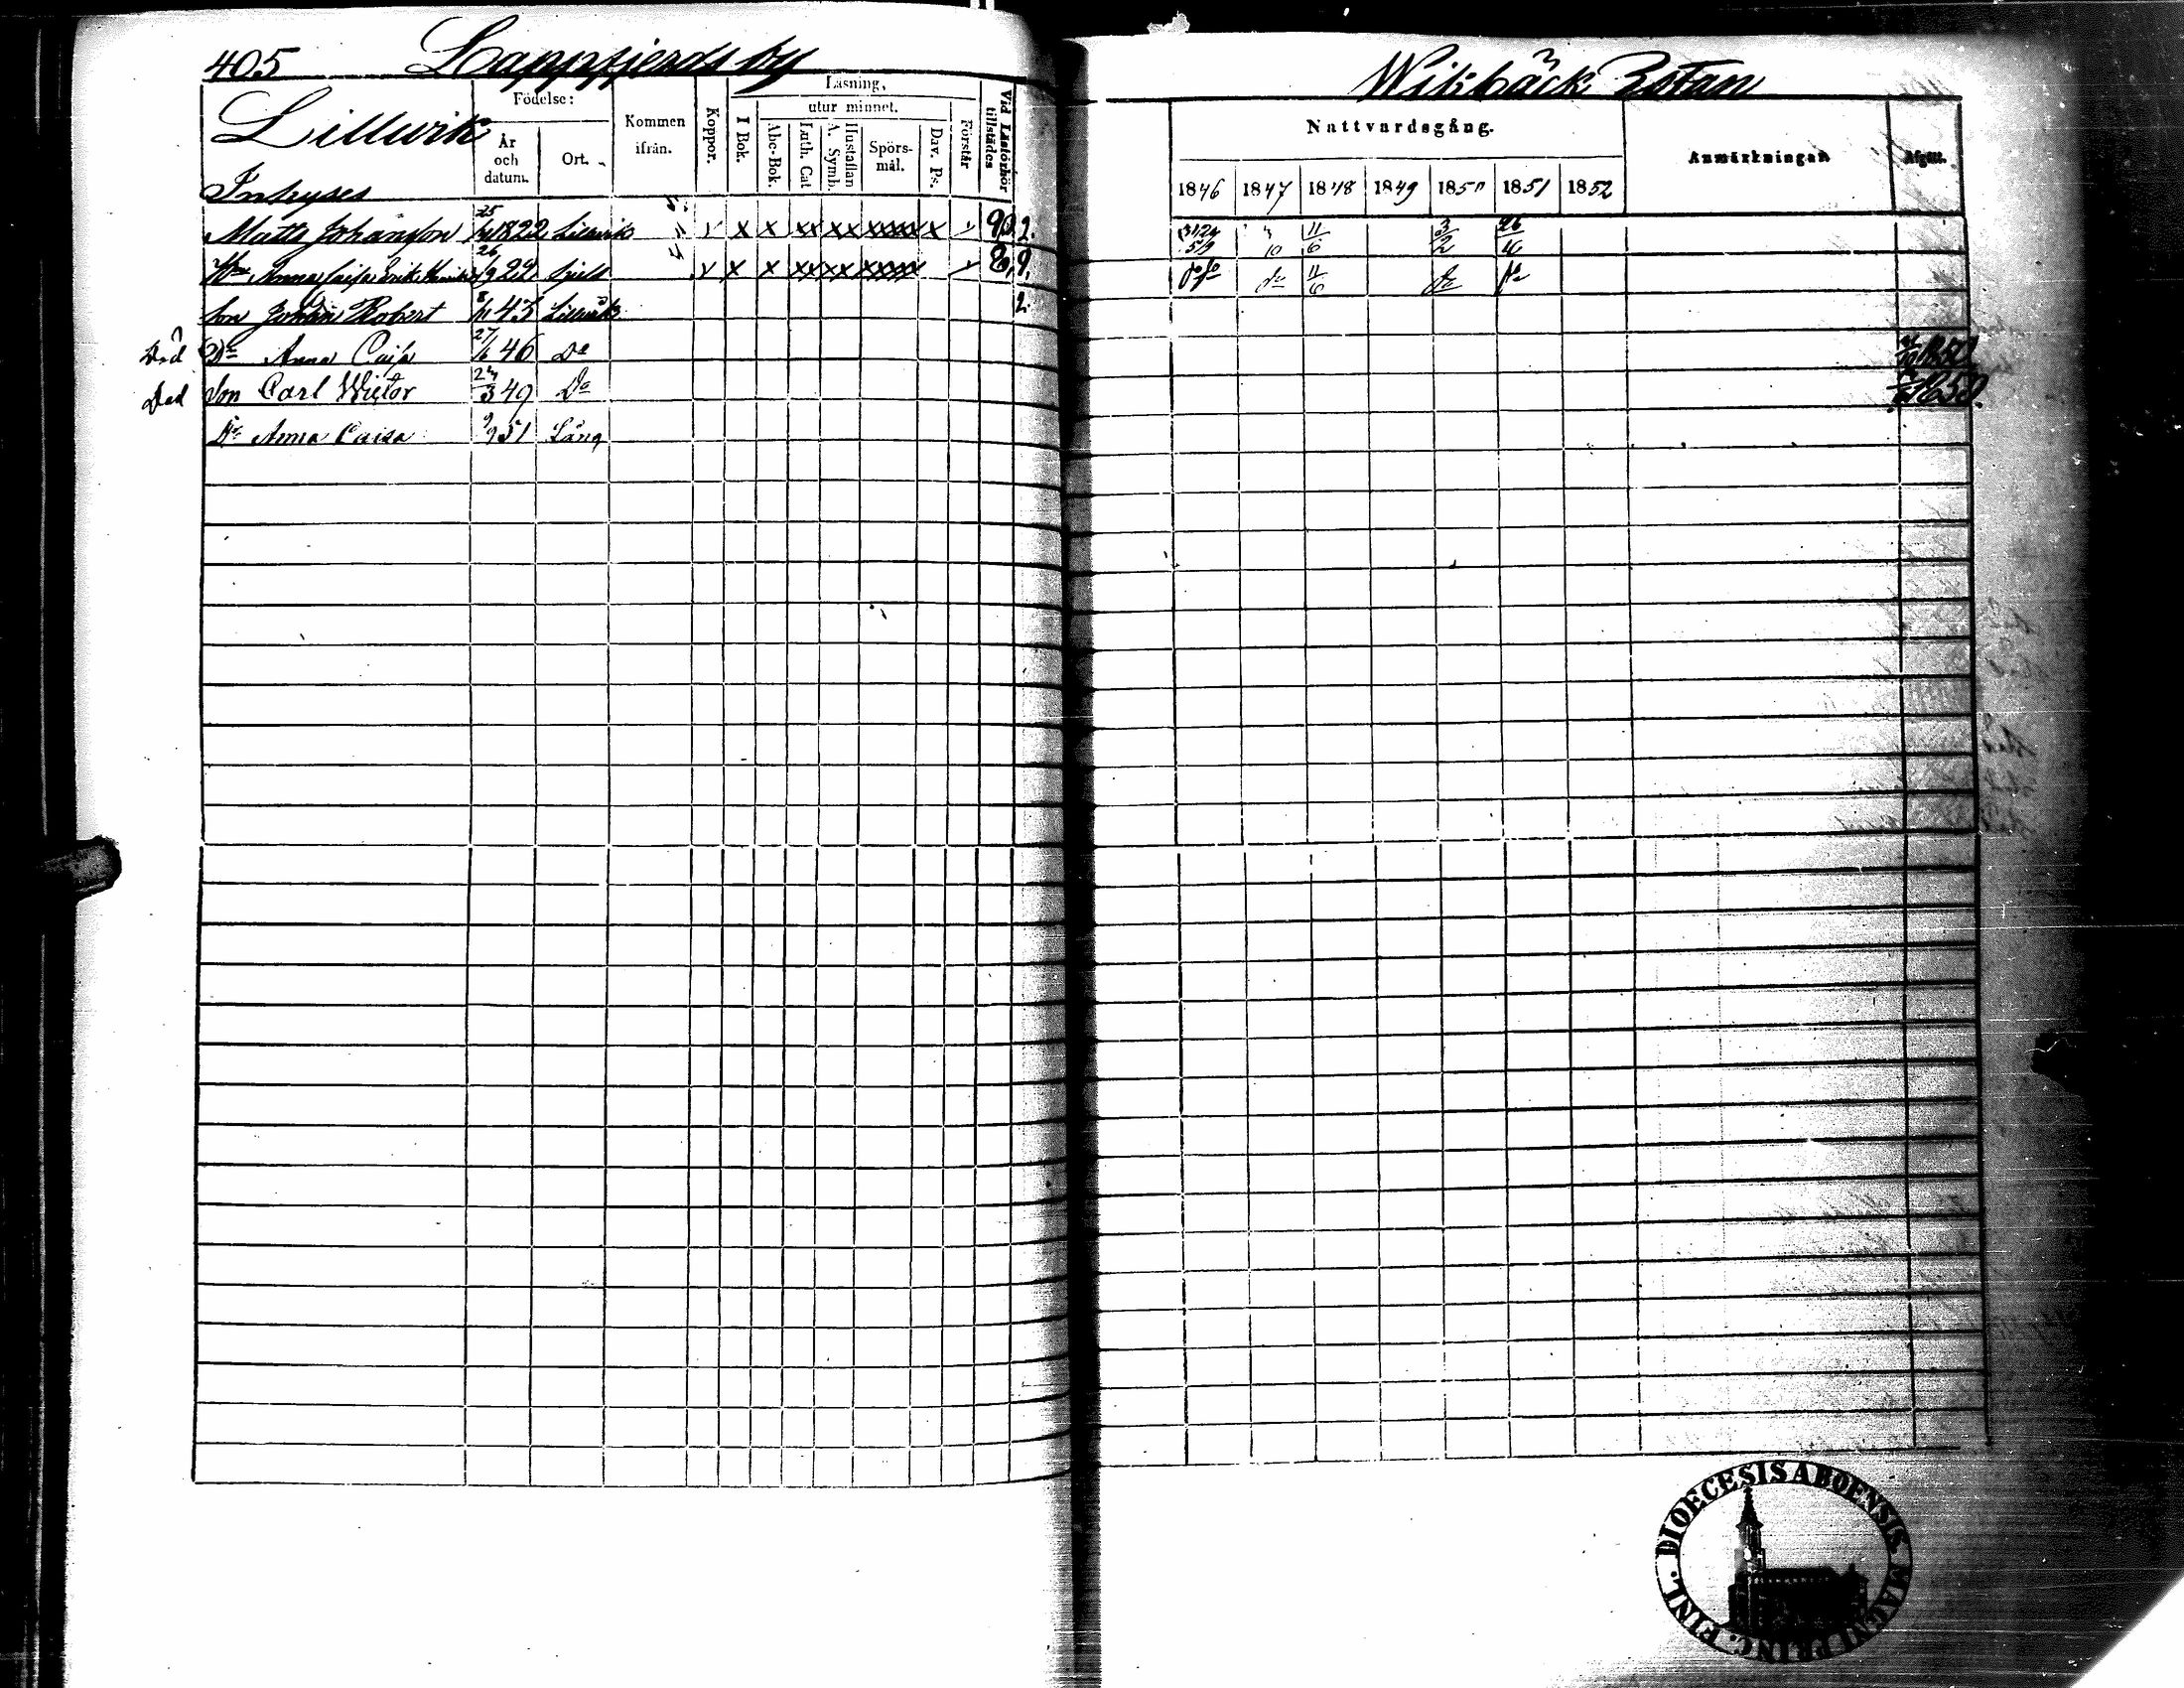 405 Lappfjerds by
Wikbäck Rotan
Lillwik
Födelse:
Kommen ifrån.
Koppor.
Läsning,
utur minnet.
I Bok.
Abc-Bok.
Luth. Cat
A. Symb.
Hustaflan
Spörsmål.
Dav. Ps.
Förstår
Vid Läsförhör tillstädes
År och datum.
Ort.
Nattvardsgång.
Anmärkningar
Afgått.
1846 1847 1848 1849 1850 1851 1852
Inhyses
Matts Johansson 25 1822 Lillwik v x x xx xx xxxxx x 9,0.2.
5/9 10 11/6 3/2 26/10
Anna Caisa Erik 26/9 24 v x x xx xx xxxxx 8,9,
do do do 11/6 do do
Son Johan Robert 8/11 43 Lillwik 2.
Död Dr Anna Caisa 27/6 46 Do 1850
Död Son Carl Wictor 24/3 49 Do 1850.
Dr Anna Caisa 9/9 51 Lång
DIOECESIS ABOENSIS MAGNI PRINC. FINL.